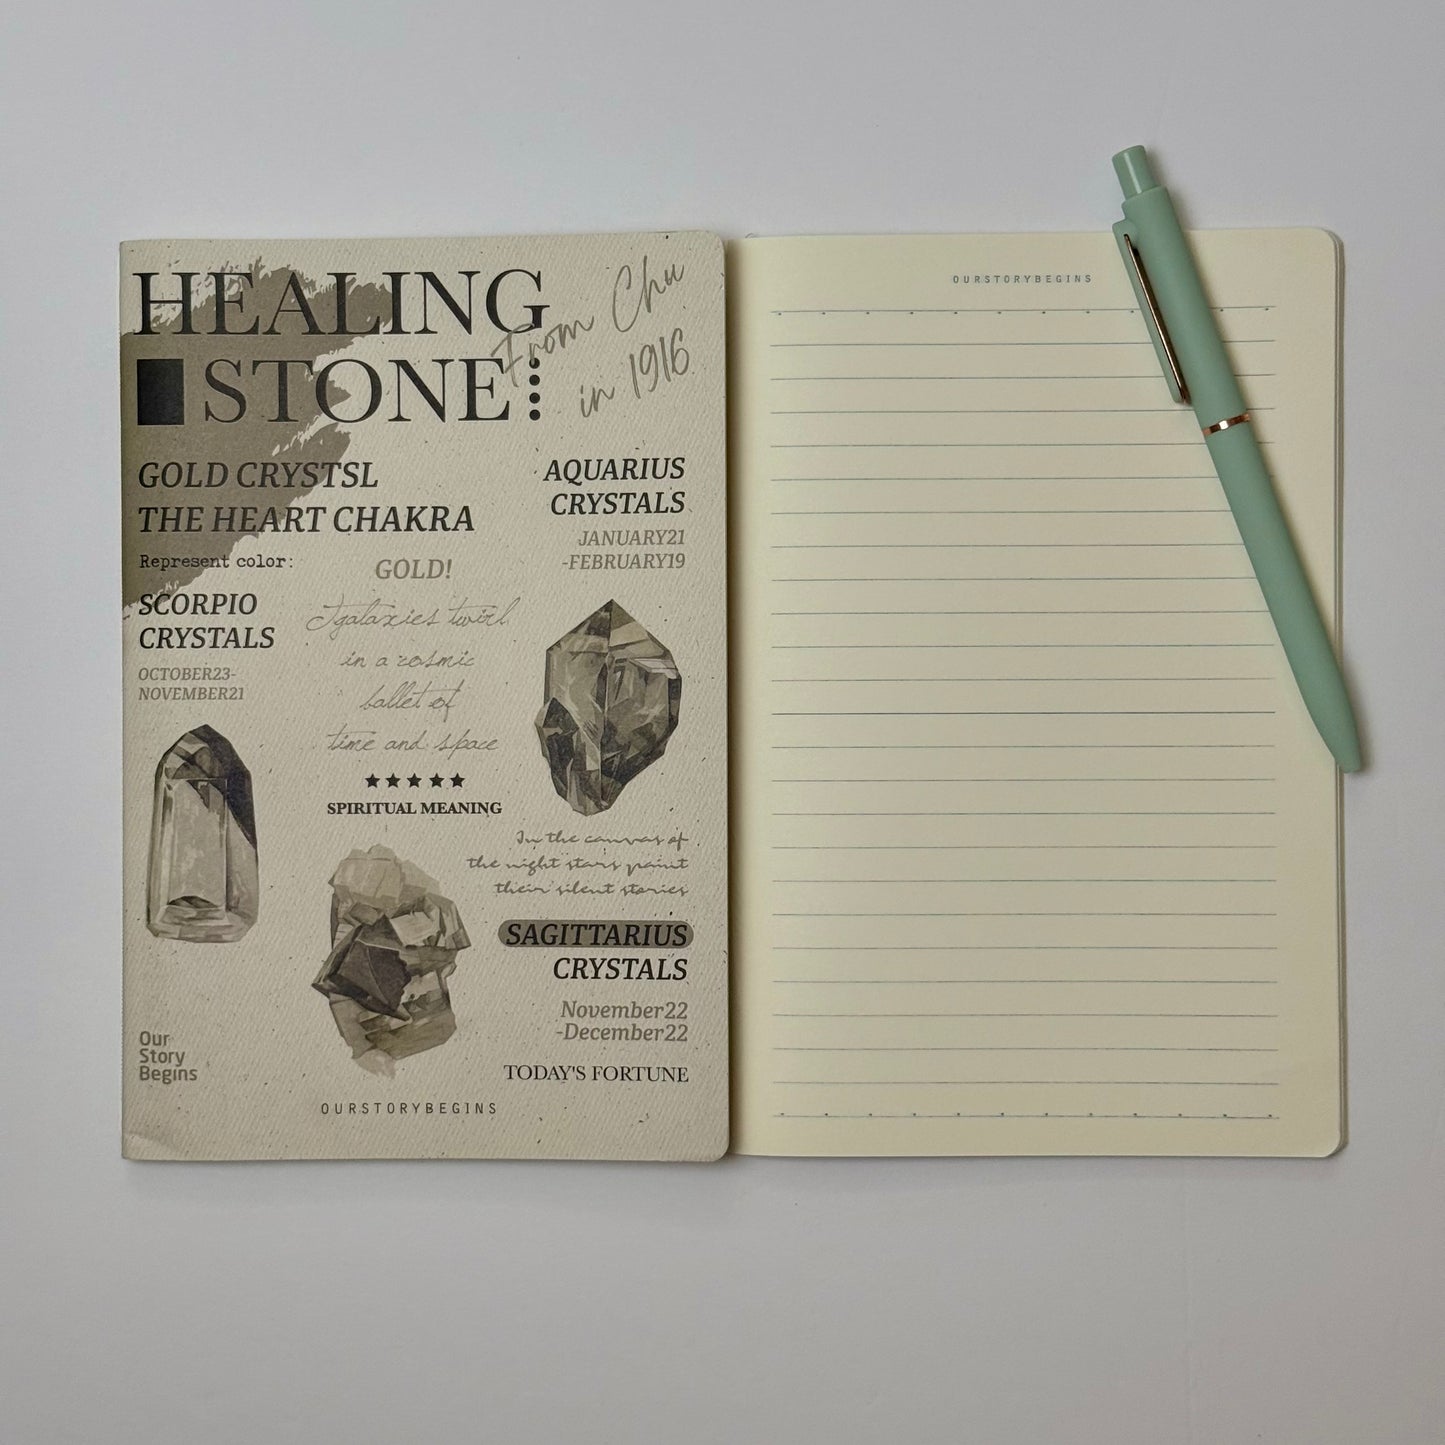 HEALING
STONE
From Chu
in 1916
GOLD CRYSTSL
THE HEART CHAKRA
Represent color:
GOLD!
AQUARIUS
CRYSTALS
JANUARY21
-FEBRUARY19
SCORPIO
CRYSTALS
OCTOBER23-
NOVEMBER21
galaxies twirl
in a cosmic
ballet of
time and space
SPIRITUAL MEANING
In the canvas of
the night stars paint
their silent stories
SAGITTARIUS
CRYSTALS
November22
-December22
TODAY'S FORTUNE
Our
Story
Begins
OURSTORYBEGINS
OURSTORYBEGINS